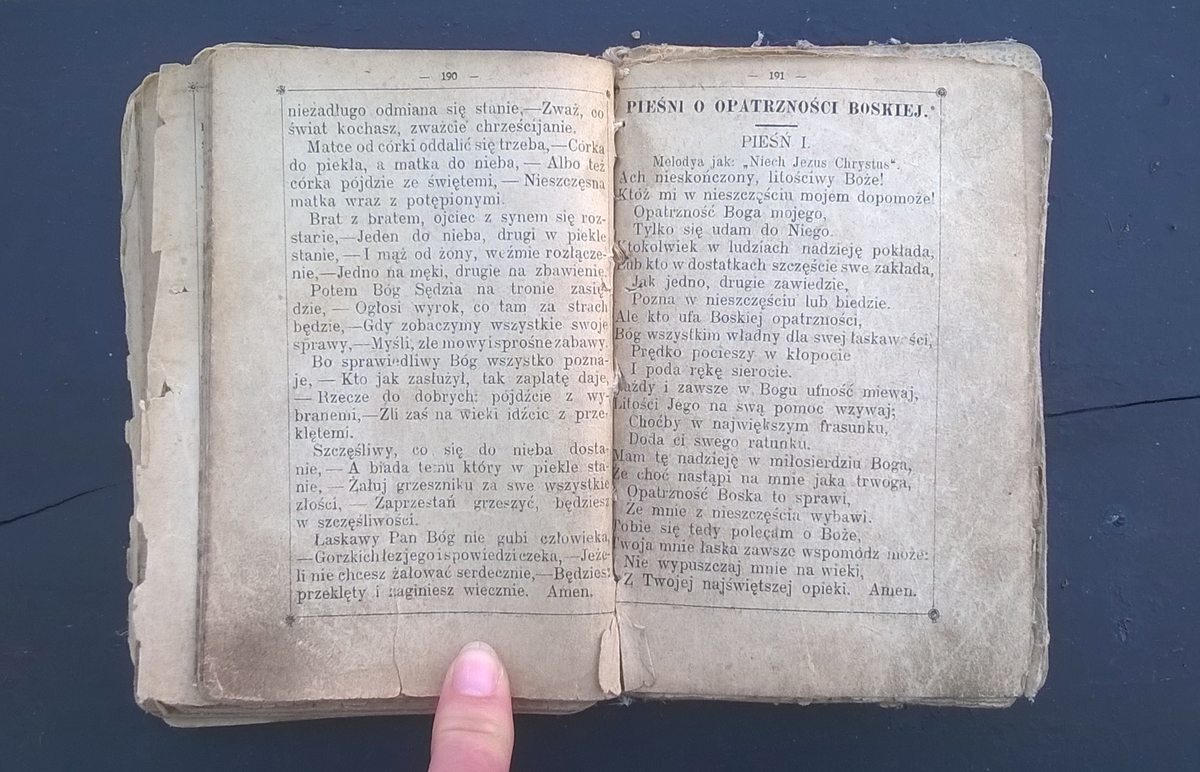 — 190 —
niezadługo odmiana się stanie,—Zważ, co
świat kochasz, zważcie chrześcijanie.
Matce od córki oddalić się trzeba,—Córka
do piekła, a matka do nieba, — Albo też
córka pójdzie ze świętemi, — Nieszczęsna
matka wraz z potępionymi.
Brat z bratem, ojciec z synem się roz-
stanie,—Jeden do nieba, drugi w piekle
stanie, — I mąż od żony, weźmie rozłącze-
nie,—Jedno na męki, drugie na zbawienie.
Potem Bóg Sędzia na tronie zasię-
dzie, — Ogłosi wyrok, co tam za strach
będzie,—Gdy zobaczymy wszystkie swoje
sprawy,—Myśli, złe mowy i sprośne zabawy.
Bo sprawiedliwy Bóg wszystko pozna-
je, — Kto jak zasłużył, tak zapłatę daje,
— Rzecze do dobrych: pójdźcie z wy-
branemi,—Źli zaś na wieki idźcie z prze-
klętemi.
Szczęśliwy, co się do nieba dosta-
nie, — A biada temu który w piekle sta-
nie, — Żałuj grzeszniku za swe wszystkie
złości, — Zaprzestań grzeszyć, będziesz
w szczęśliwości.
Łaskawy Pan Bóg nie gubi człowieka,
—Gorzkich łez jego i spowiedzi czeka, —Jeże-
li nie chcesz żałować serdecznie,—Będziesz
przeklęty i zaginiesz wiecznie. Amen.
— 191 —
PIEŚNI O OPATRZNOŚCI BOSKIEJ.
PIEŚŃ I.
Melodya jak: „Niech Jezus Chrystus“.
Ach nieskończony, litościwy Boże!
Któż mi w nieszczęściu mojem dopomoże!
Opatrzność Boga mojego,
Tylko się udam do Niego.
Ktokolwiek w ludziach nadzieję pokłada,
Lub kto w dostatkach szczęście swe zakłada,
Jak jedno, drugie zawiedzie,
Pozna w nieszczęściu lub biedzie.
Ale kto ufa Boskiej opatrzności,
Bóg wszystkim władny dla swej łaskawości,
Prędko pocieszy w kłopocie
I poda rękę sierocie.
Każdy i zawsze w Bogu ufność miewaj,
Litości Jego na swą pomoc wzywaj;
Choćby w największym frasunku,
Doda ci swego ratunku.
Mam tę nadzieję w miłosierdziu Boga,
Że choć nastąpi na mnie jaka trwoga,
Opatrzność Boska to sprawi,
Że mnie z nieszczęścia wybawi.
Tobie się tedy polecam o Boże,
Twoja mnie łaska zawsze wspomódz może:
Nie wypuszczaj mnie na wieki,
Z Twojej najświętszej opieki. Amen.